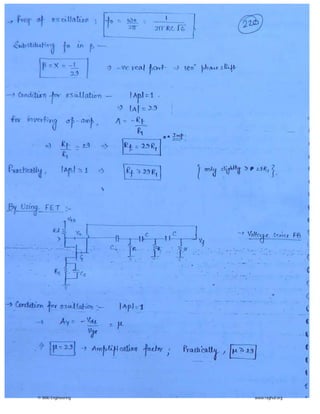 → Freq of oscillation : f₀ = ω₀/2π = 1/(2πRC√6)
220
Substituting f₀ in β —
β = X = -1/29 → -ve real part → 180° phase shift
→ Condition for oscillation — |Aβ| = 1.
⇒ |A| = 29
for inverting op-amp, A = -Rf/R1
* * Imp.
⇒ Rf/R1 = 29 ⇒ Rf = 29R1
Practically, |Aβ| ≥ 1 ⇒ Rf ≥ 29R1 { only slightly > 29R1 }
By Using FET :-
VDD
Rd Vo C C C Vf → Voltage Series FB
R R R
Rs Cs
→ Condition for oscillation :- |Aβ| = 1
→ AV = -Vds/Vgs = μ
⇒ μ = 29 → Amplification factor ; Practically, μ ≥ 29
www.raghul.org